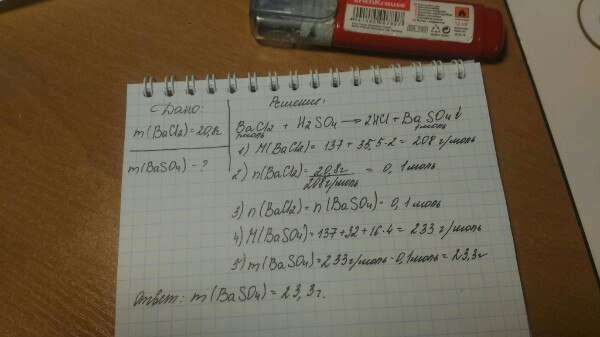 ErichKrause
Дано:
m(BaCl2)=20,8г
m(BaSO4)-?
Решение:
BaCl2 + H2SO4 → 2HCl + BaSO4↓
1моль 1моль
1) M(BaCl2) = 137 + 35,5·2 = 208 г/моль
2) n(BaCl2) = 20,8г / 208г/моль = 0,1моль
3) n(BaCl2) = n(BaSO4) = 0,1моль
4) M(BaSO4) = 137+32+16·4 = 233 г/моль
5) m(BaSO4) = 233г/моль·0,1моль = 23,3г
Ответ: m(BaSO4) = 23,3г.